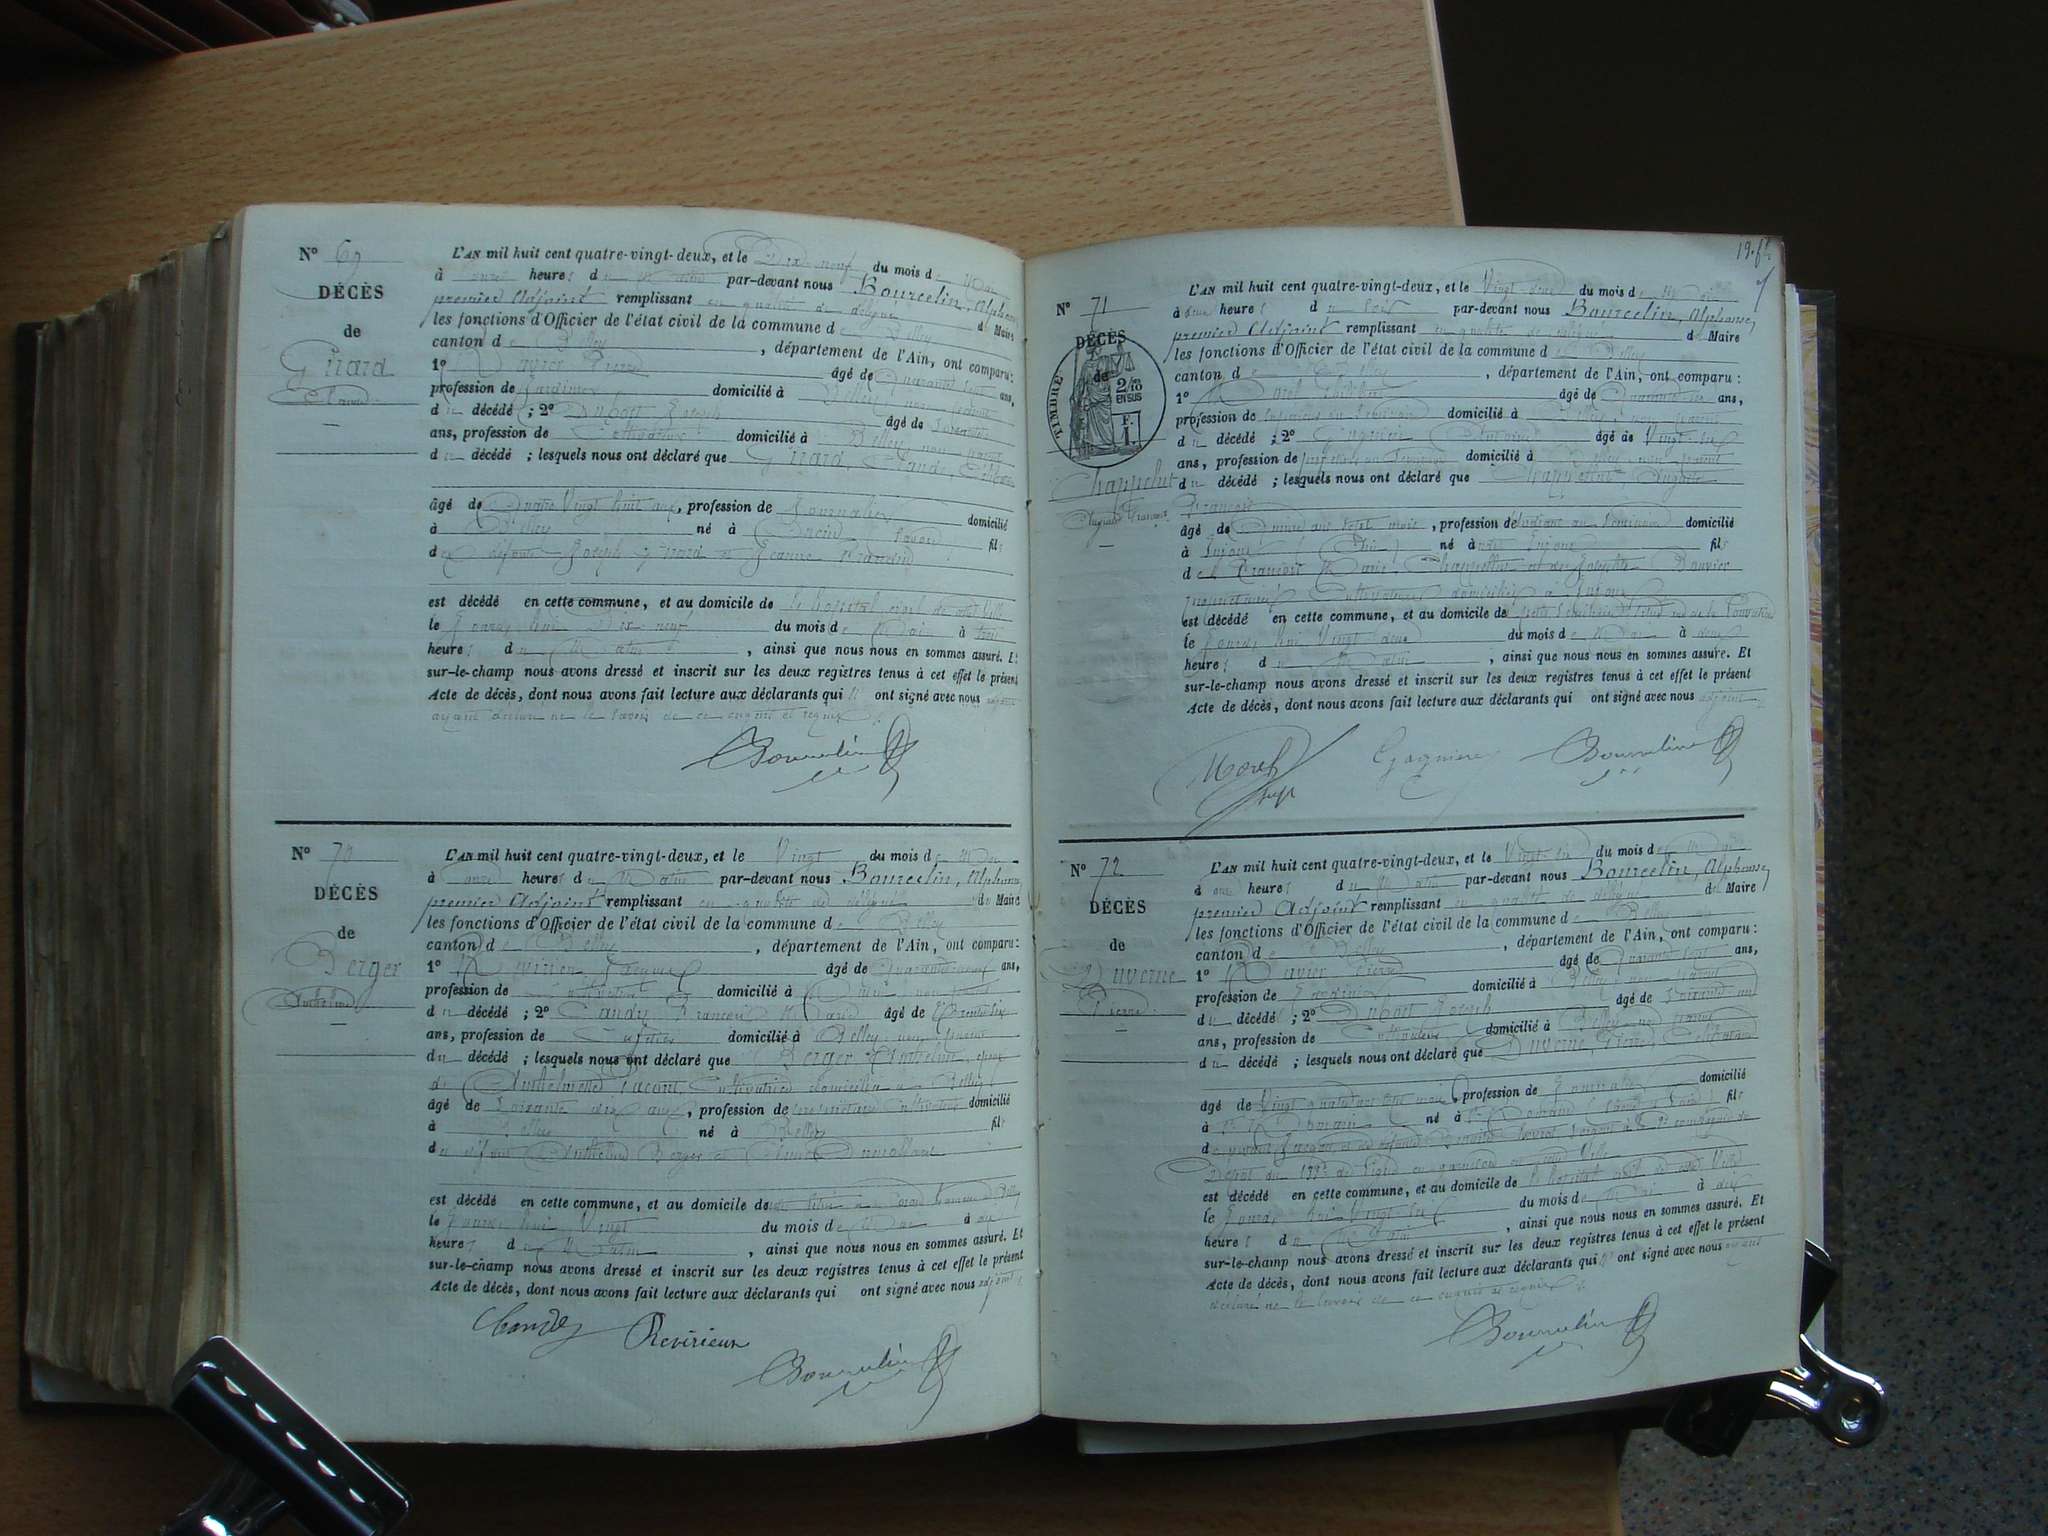 N° 69
DÉCÈS
de
Girard
Claude
L'AN mil huit cent quatre-vingt-deux, et le Dix neuf du mois de Mai
à onze heures du Matin par-devant nous Bourcelin, Alphonse,
premier Adjoint remplissant en qualité de délégué du Maire
les fonctions d'Officier de l'état civil de la commune de Belley
canton de Belley, département de l'Ain, ont comparu:
1° Pierre âgé de Quarante sept ans,
profession de Jardinier domicilié à Belley non parent
du décédé; 2° Dubost Joseph âgé de Soixante
ans, profession de Cultivateur domicilié à Belley non parent
du décédé; lesquels nous ont déclaré que Girard, Claude, Célibataire
âgé de Quatre Vingt huit ans, profession de Journalier domicilié
à Belley né à fils
de défunts Joseph Girard et Jeanne
est décédé en cette commune, et au domicile de l'hospital civil de cette Ville
le Jourd'hui Dix neuf du mois de Mai à trois
heures du Matin, ainsi que nous nous en sommes assuré. Et
sur-le-champ nous avons dressé et inscrit sur les deux registres tenus à cet effet le présent
Acte de décès, dont nous avons fait lecture aux déclarants qui ont signé avec nous
ayant déclaré ne le savoir de ce enquis et requis
Bourcelin
N° 70
DÉCÈS
de
Berger
Anthelme
L'AN mil huit cent quatre-vingt-deux, et le Vingt du mois de Mai
à onze heures du Matin par-devant nous Bourcelin, Alphonse,
premier Adjoint remplissant en qualité de délégué du Maire
les fonctions d'Officier de l'état civil de la commune de Belley
canton de Belley, département de l'Ain, ont comparu:
1° Revirieux Jacques âgé de Quarante ans,
profession de Cultivateur domicilié à
du décédé; 2° Chandy François Marie âgé de Trente six
ans, profession de domicilié à Belley non parent
du décédé; lesquels nous ont déclaré que Berger Anthelme, époux
de Anthelmette cultivatrice domiciliée à Belley
âgé de Soixante dix ans, profession de propriétaire cultivateur domicilié
à Belley né à Belley fils
de défunt Anthelme Berger et
est décédé en cette commune, et au domicile de
le Jourd'hui Vingt du mois de Mai à six
heures du Matin, ainsi que nous nous en sommes assuré. Et
sur-le-champ nous avons dressé et inscrit sur les deux registres tenus à cet effet le présent
Acte de décès, dont nous avons fait lecture aux déclarants qui ont signé avec nous adjoint
Chandy Revirieux
Bourcelin
19. ft
N° 71
DÉCÈS
de
TIMBRE
2/10
EN SUS
F.
1.
Chappelut
Auguste François
L'AN mil huit cent quatre-vingt-deux, et le Vingt deux du mois de Mai
à deux heures du soir par-devant nous Bourcelin, Alphonse,
premier Adjoint remplissant en qualité de délégué du Maire
les fonctions d'Officier de l'état civil de la commune de Belley
canton de Belley, département de l'Ain, ont comparu:
1° Morel âgé de Quarante ans,
profession de Supérieur du Séminaire domicilié à Belley non parent
du décédé; 2° Gagnière Antoine âgé de Vingt six
ans, profession de professeur au Séminaire domicilié à Belley non parent
du décédé; lesquels nous ont déclaré que Auguste
François
âgé de ans sept mois, profession d'étudiant au Séminaire domicilié
à Injoux (Ain) né à Injoux fils
de François Marie et de Bouvier
propriétaires Cultivateurs domiciliés à Injoux
est décédé en cette commune, et au domicile de
le Jourd'hui Vingt deux du mois de Mai à deux
heures du Matin, ainsi que nous nous en sommes assuré. Et
sur-le-champ nous avons dressé et inscrit sur les deux registres tenus à cet effet le présent
Acte de décès, dont nous avons fait lecture aux déclarants qui ont signé avec nous adjoint
Morel Gagnière Bourcelin
sup
N° 72
DÉCÈS
de
Duverne
Pierre
L'AN mil huit cent quatre-vingt-deux, et le Vingt six du mois de Mai
à onze heures du Matin par-devant nous Bourcelin, Alphonse,
premier Adjoint remplissant en qualité de délégué du Maire
les fonctions d'Officier de l'état civil de la commune de Belley
canton de Belley, département de l'Ain, ont comparu:
1° Pierre âgé de Quarante sept ans,
profession de Jardinier domicilié à Belley, non parent
du décédé; 2° Dubost Joseph âgé de Soixante un
ans, profession de Cultivateur domicilié à Belley non parent
du décédé; lesquels nous ont déclaré que Duverne, Pierre, Célibataire
âgé de Vingt quatre ans sept mois, profession de Journalier domicilié
à St Romain né à St Romain (Saône et Loire) fils
de vivant Jacques, et de défunte soldat à la 2e compagnie de
Dépôt du 133e de Ligne en garnison en cette Ville
est décédé en cette commune, et au domicile de l'hospital civil de cette Ville
le Jourd'hui Vingt six du mois de Mai à dix
heures du Matin, ainsi que nous nous en sommes assuré. Et
sur-le-champ nous avons dressé et inscrit sur les deux registres tenus à cet effet le présent
Acte de décès, dont nous avons fait lecture aux déclarants qui n'ont signé avec nous ayant
déclaré ne le savoir de ce enquis et requis
Bourcelin